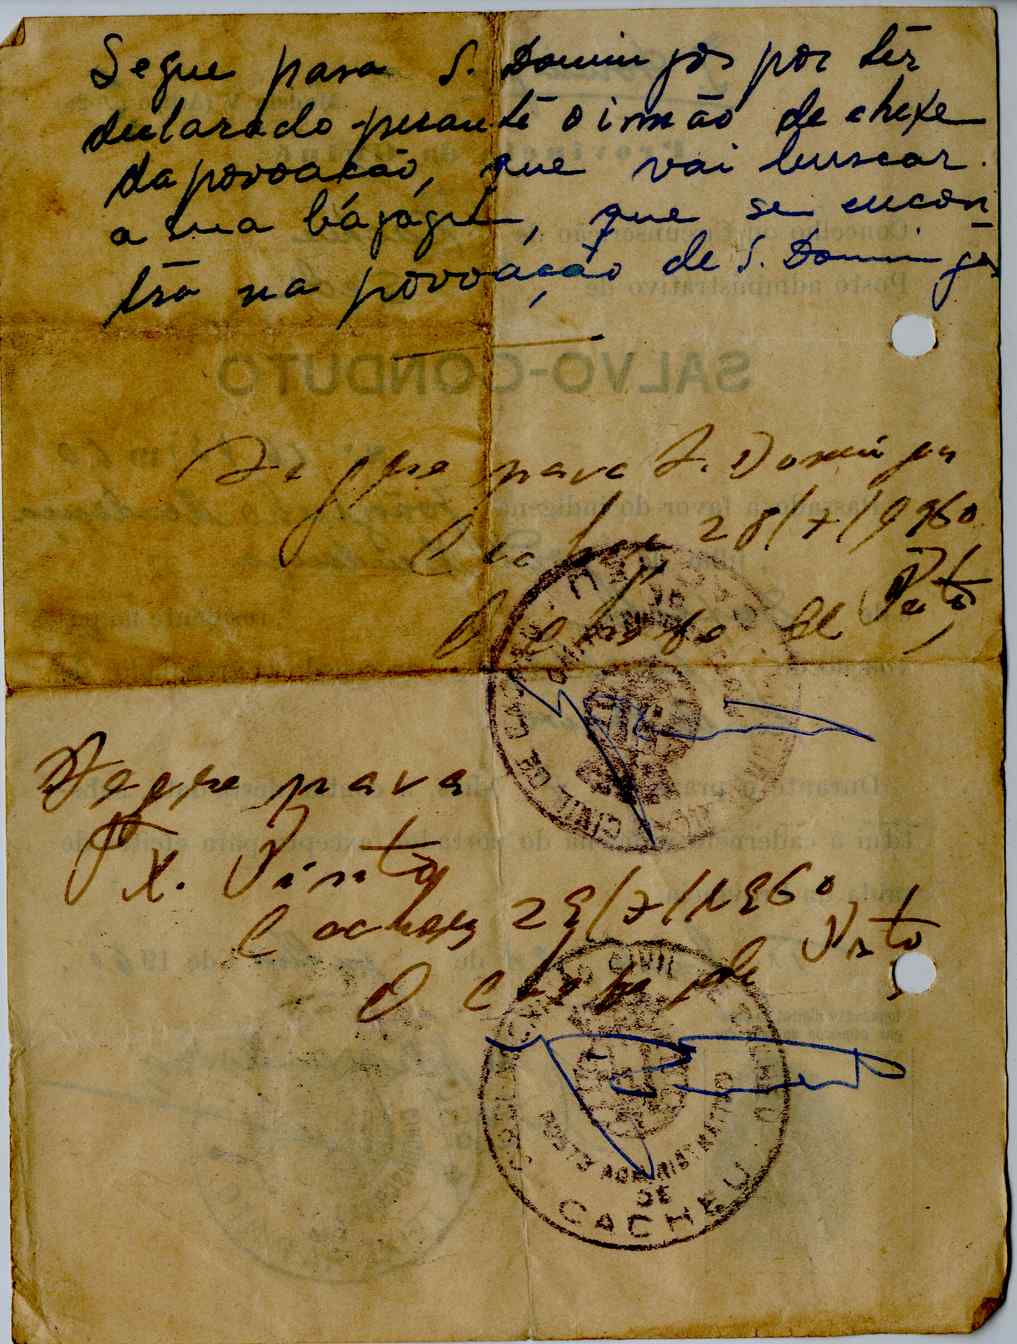 Segue para S. Domingos por têr
declarado perante o irmão de chefe
da povoação, que vai buscar
a sua bágágem, que se encon
tra na povoação de S. Domingos
SALVO-CONDUTO
Segue para S. Domingos
Cacheu 28/7/1960
O Chefe de Pôsto
Segue para
Tx. Pinto
Cacheu 29/7/1960
O Chefe de Posto
CIVIL DE CACHEU
CIVIL
POSTO ADMINISTRATIVO
DE
CACHEU